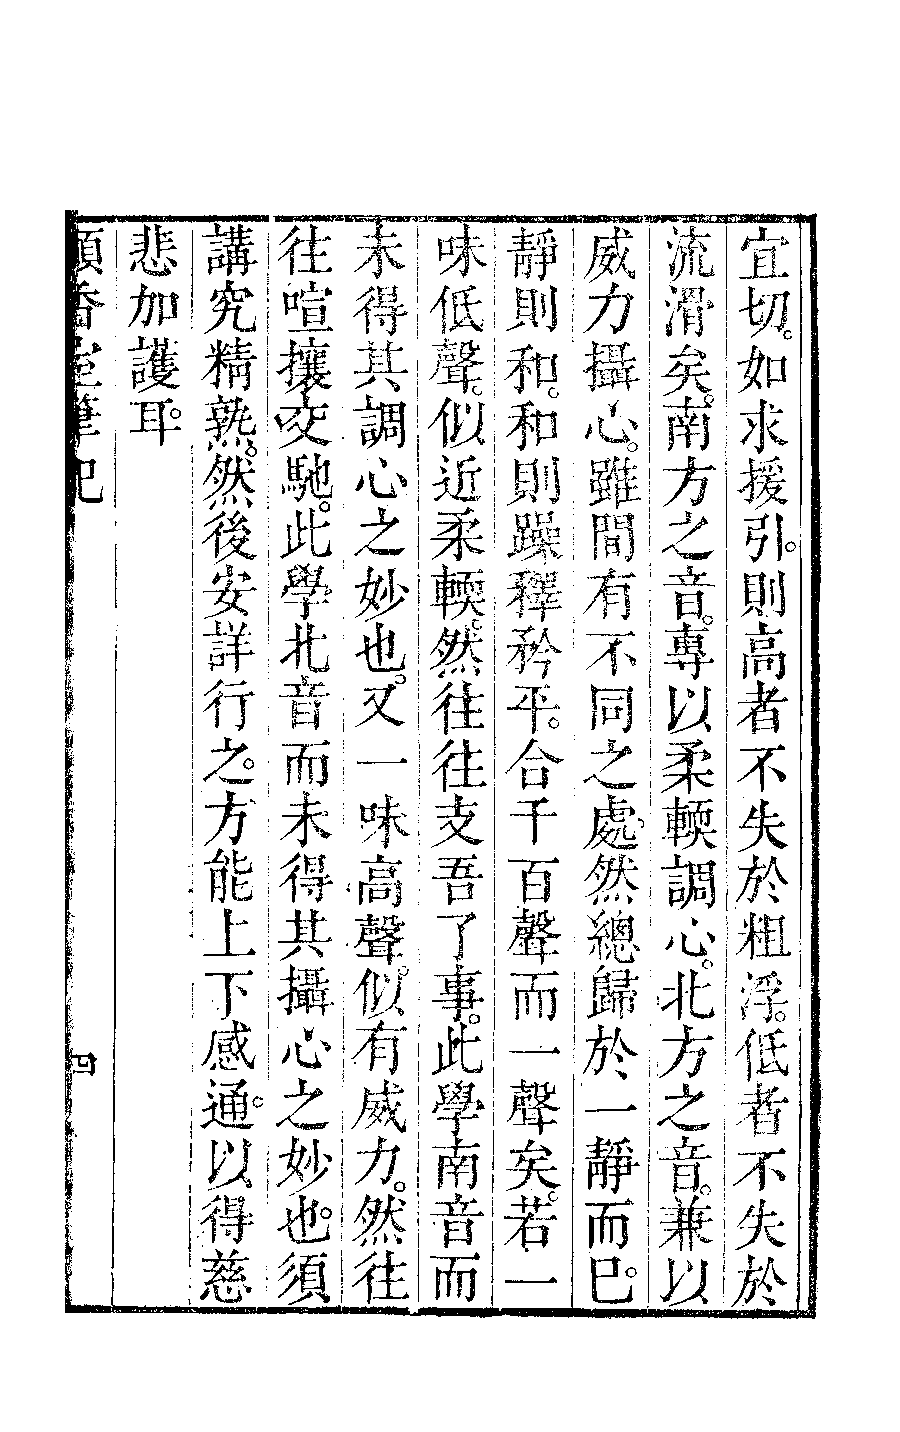 宜切。如求援引。則高者不失於粗浮。低者不失於
流滑矣。南方之音。專以柔輭調心。北方之音。兼以
威力攝心。雖間有不同之處。然總歸於一靜而巳。
靜則和。和則躁釋矜平。合千百聲而一聲矣。若一
味低聲。似近柔輭。然往往支吾了事。此學南音而
未得其調心之妙也。又一味高聲。似有威力。然往
往喧攘交馳。此學北音而未得其攝心之妙也。須
講究精熟。然後安詳行之。方能上下感通。以得慈
悲加護耳。
香室筆記
四